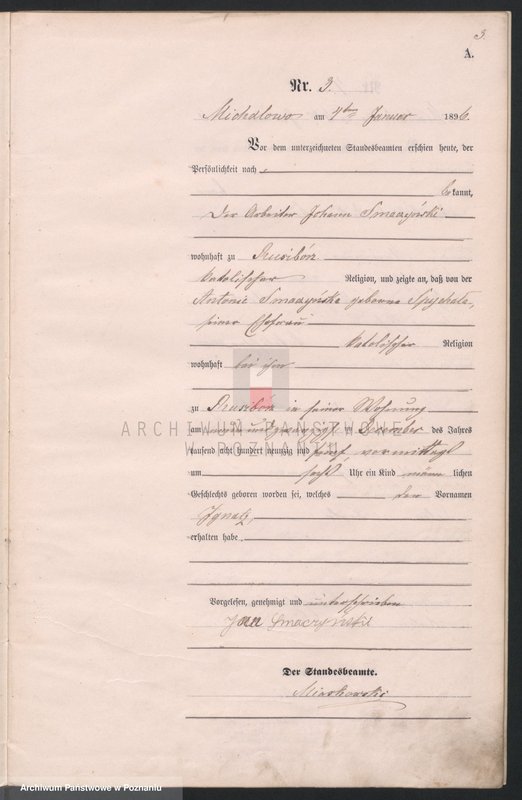 3.
A.
Nr. 3.
Michalowo am 4ten Januar 1896.
Vor dem unterzeichneten Standesbeamten erschien heute, der
Persönlichkeit nach
bekannt,
Der Arbeiter Johann Smaczyński
wohnhaft zu Rusibórz
katolischer Religion, und zeigte an, daß von der
Antonie Smaczyńska geborene Spychala,
seiner Ehefrau
katolischer Religion
wohnhaft bei ihm
zu Rusibórz in seiner Wohnung
am undzwanzigsten December des Jahres
tausend acht hundert neunzig und fünf vormittags
um sechs Uhr ein Kind männlichen
Geschlechts geboren worden sei, welches den Vornamen
Ignatz
erhalten habe.
Vorgelesen, genehmigt und unterschrieben
Jan Smaczyński
Der Standesbeamte.
Miaskowski
ARCHIWUM PAŃSTWOWE
W POZNANIU
Archiwum Państwowe w Poznaniu